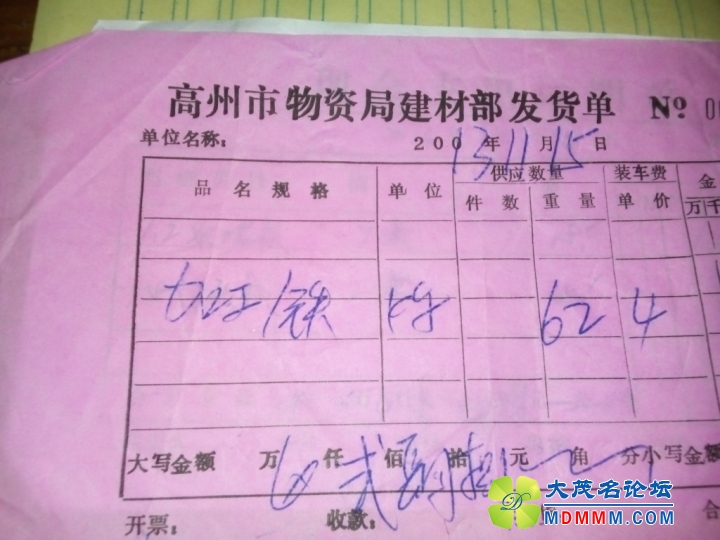 高州市物资局建材部发货单 № 0
单位名称: 200 13年11月15日
品名规格 单位 供应数量 装车费 金
件数 重量 单价 万千
铁 kg 62 4
大写金额 万 仟 佰 拾 元 角 分 小写金额
开票: 收款:
大茂名论坛
MDMMM.COM